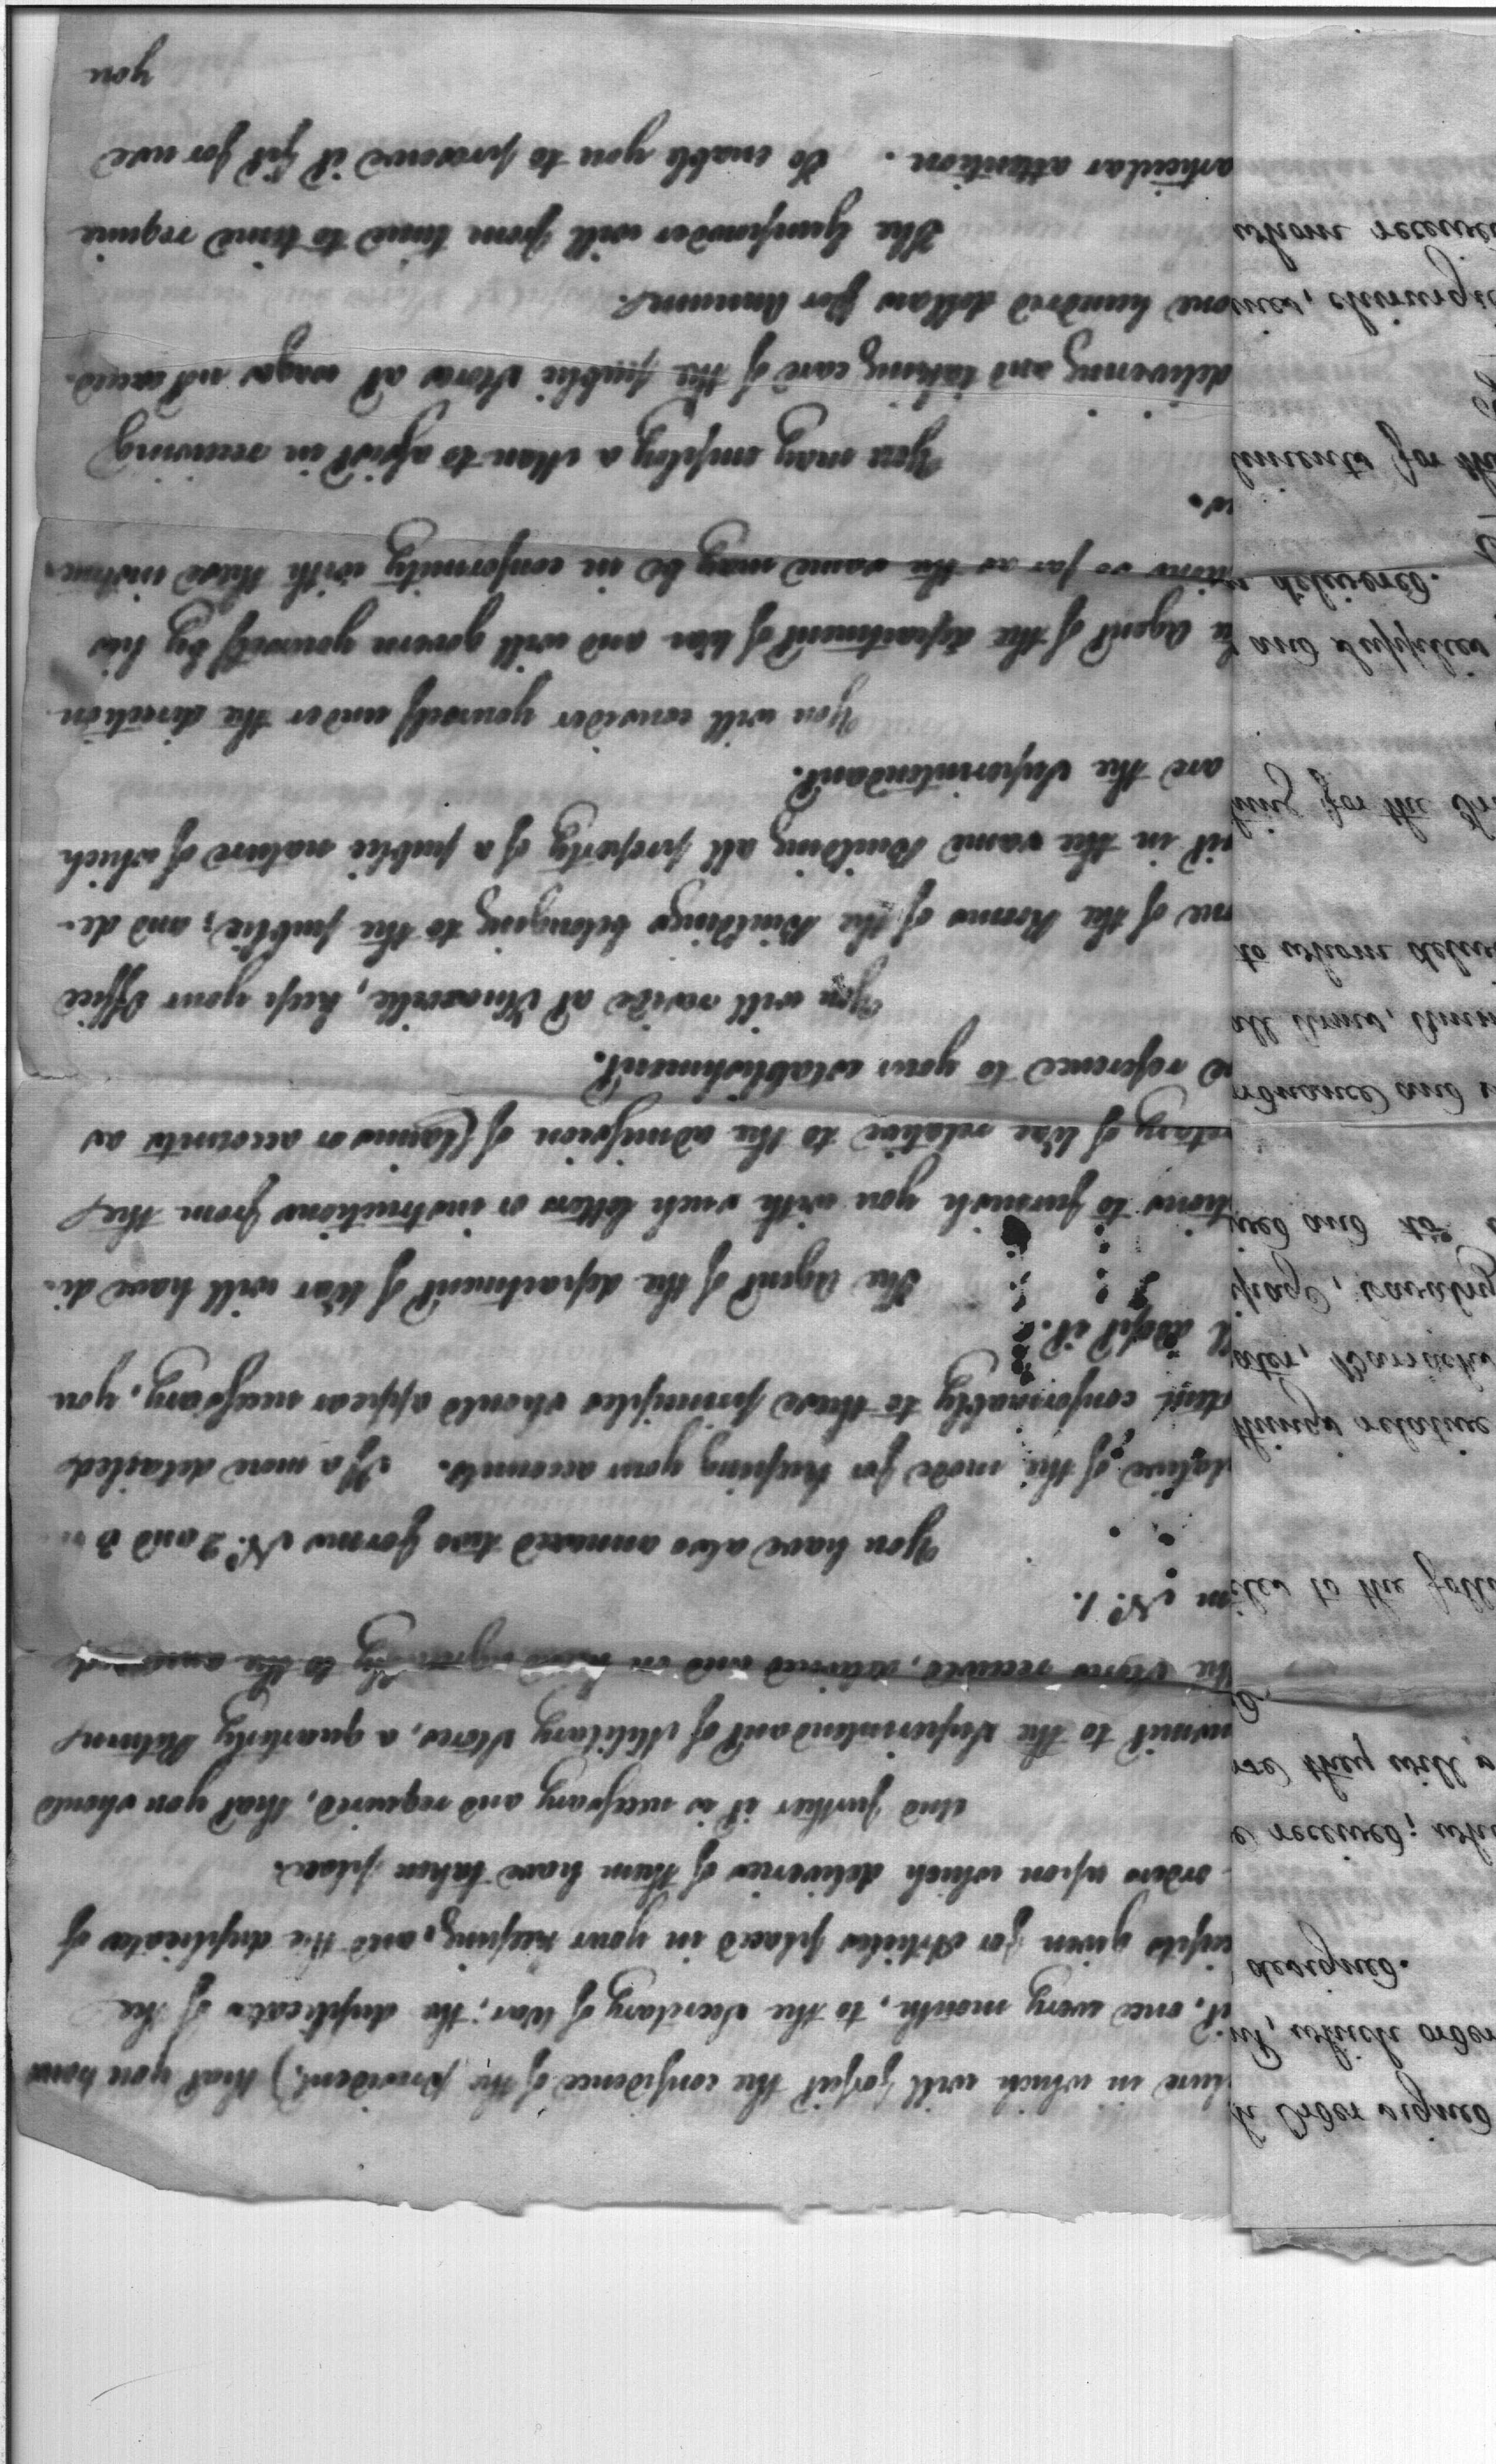 in which will forfeit the confidence of the president,) that you
once every month, to the Secretary of War, the duplicates of the
given for Articles placed in your keeping, and the duplicates of
orders upon which deliveries of them have taken place.
And further it is necessary and required, that you should
to the Superintendant of Military Stores, a quarterly Return
Stores received, and on hand agreeably to the annexed
N.º 1.
You have also annexed two forms N.º 2 and 3
of the mode for keeping your accounts. If a more detailed
conformably to these principles should appear necessary, you
adopt it.
The Agent of the department of War will have di-
to furnish you with such letters or instructions from the
of War relative to the admission of Claims or accounts as
reference to your establishment.
You will reside at Knoxville, keep your Office
of the Rooms of the Buildings belonging to the public; and de-
in the same Building all property of a public nature of which
are the Superintendant.
You will consider yourself under the direction
Agent of the department of War and will govern yourself by his
so far as the same may be in conformity with these instruc-
You may employ a Man to assist in receiving
delivering and taking care of the public stores at wages not exceed.
one hundred dollars per Annum.
The Gunpowder will from time to time require
articular attention. To enable you to preserve it fit for use
you
Order signed
which order
designed.
received;
they will
to the
things relative
Barracks
Cavalry
and to
and
all arms,
to whom
for the
and supplies
delivered.
for the
whom